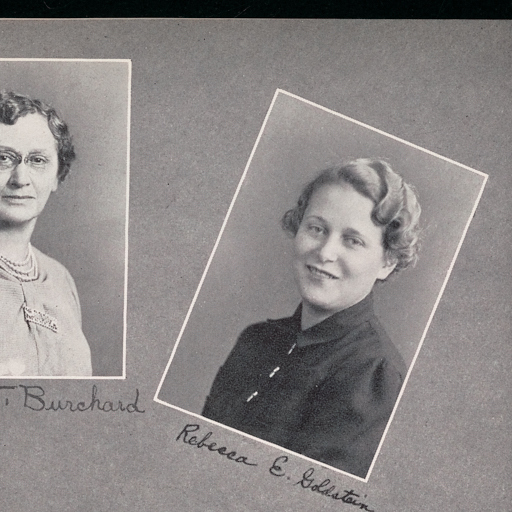 T. Burchard
Rebecca E. Goldstein